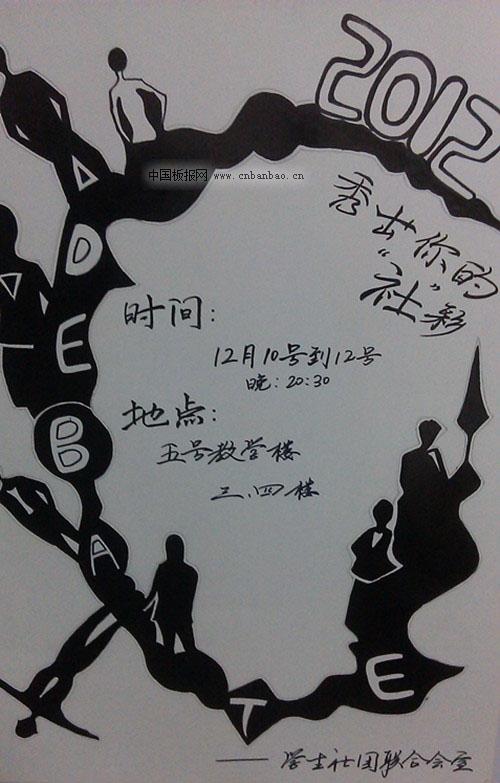 2012
中国板报网 www.cnbanbao.cn
秀出你的
“社”彩
A DEBATE
时间：
12月10号到12号
晚：20:30
地点：
五号教学楼
三、四楼
——学生社团联合会宣